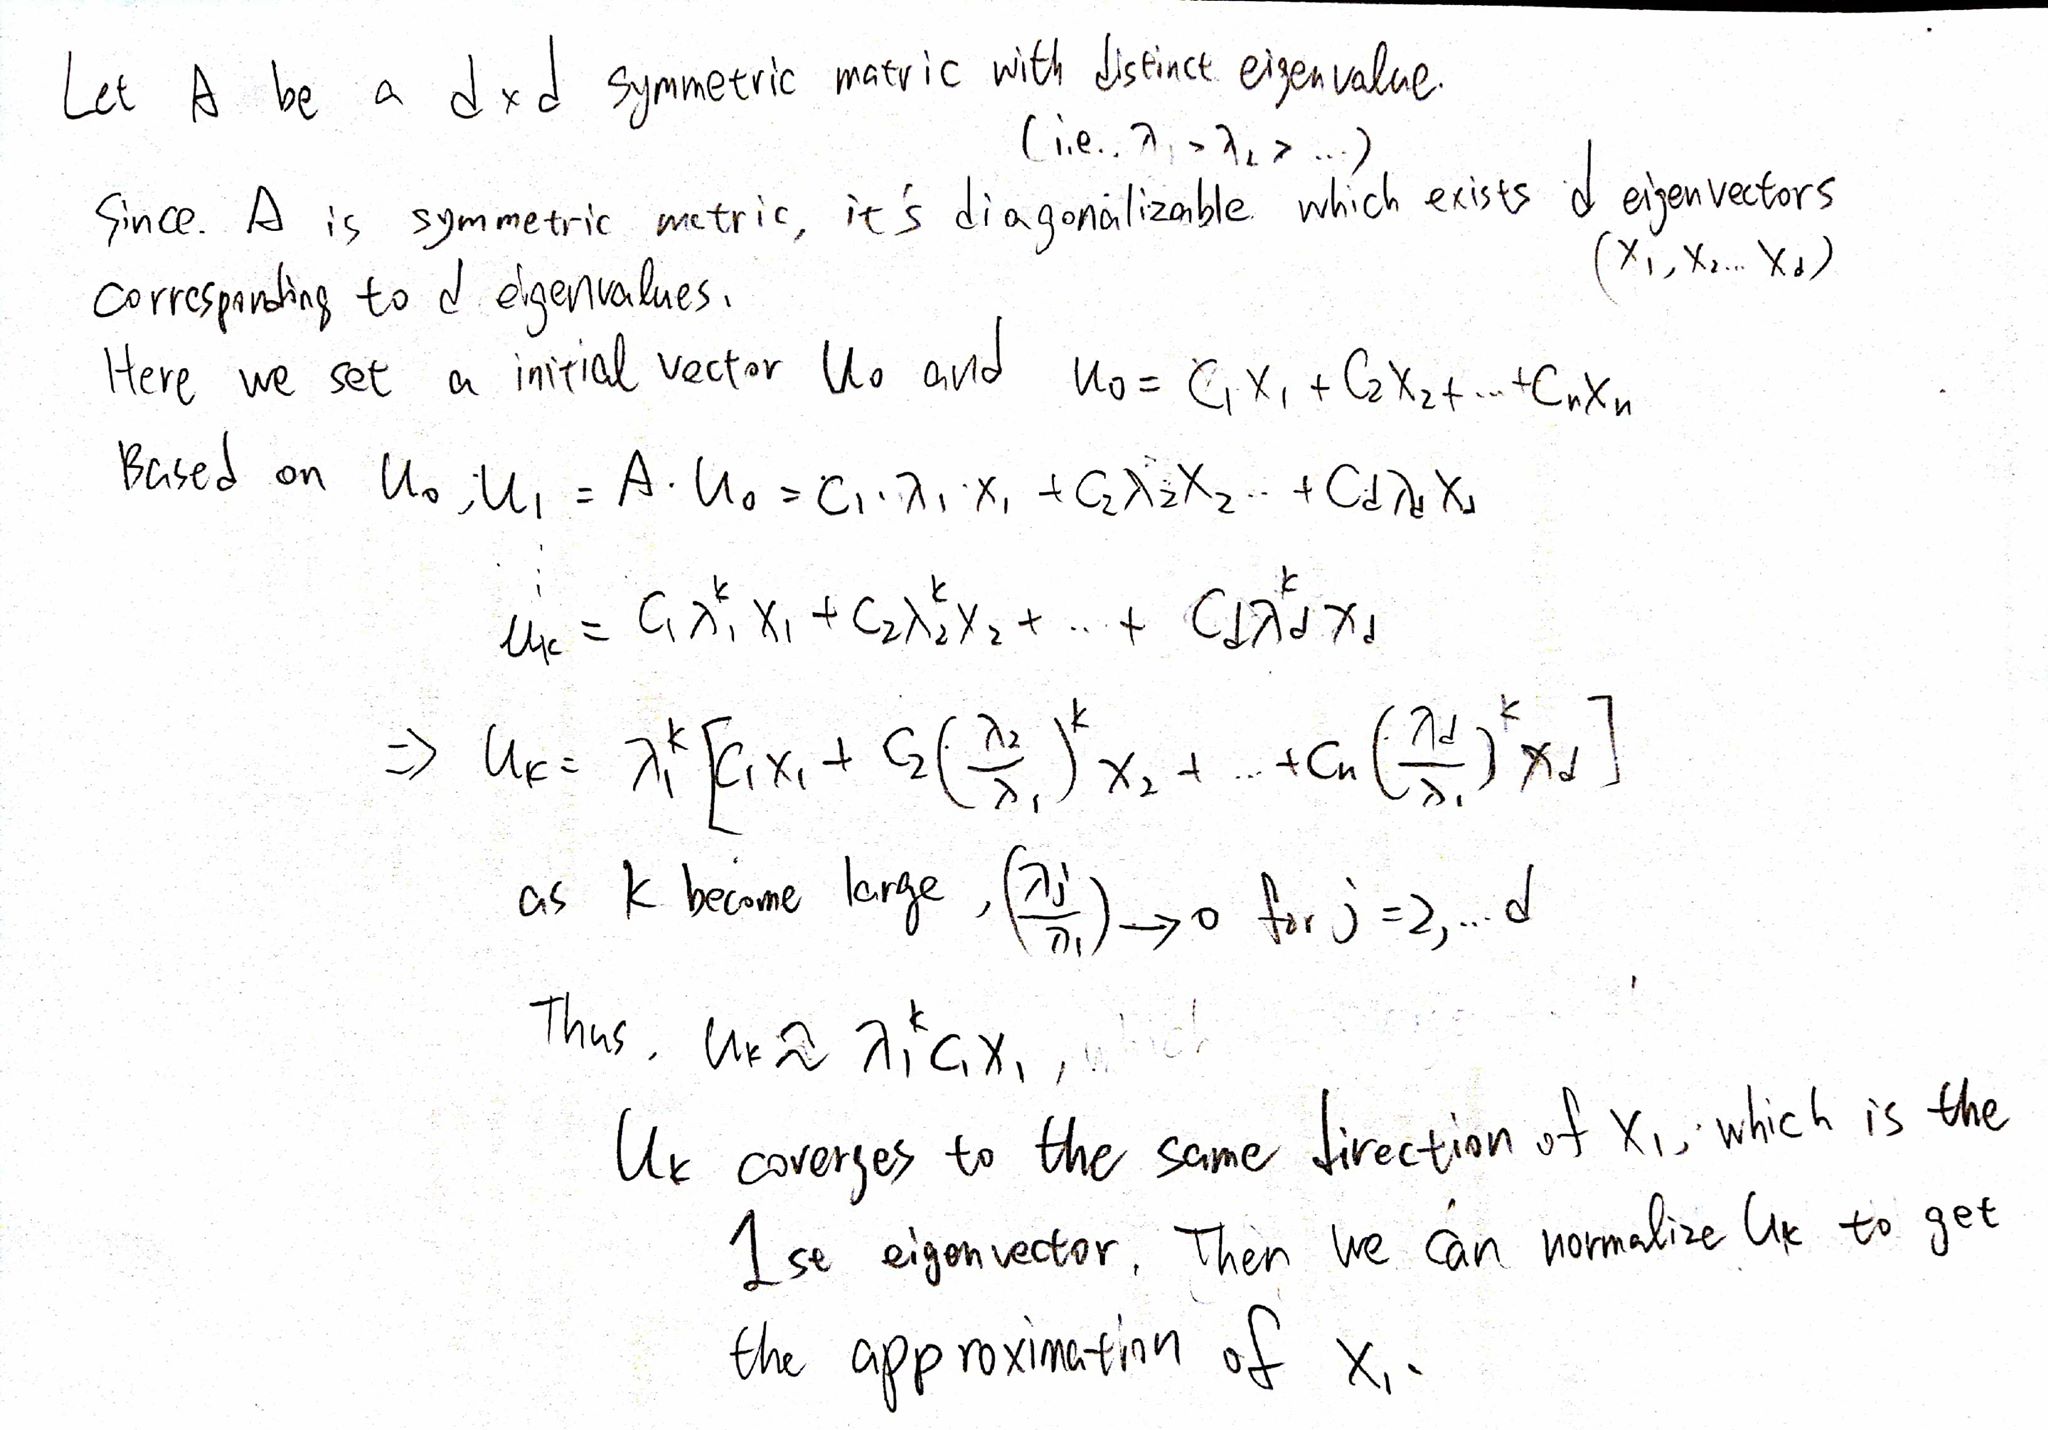 Let A be a d×d symmetric matric with distinct eigenvalue.
(i.e.. λ₁ > λ₂ > ...)
Since. A is symmetric metric, it's diagonalizable which exists d eigenvectors
(X₁, X₂... X_d)
corresponding to d eigenvalues.
Here we set a initial vector U₀ and U₀ = C₁X₁ + C₂X₂+...+CₙXₙ
Based on U₀, U₁ = A·U₀ = C₁·λ₁·X₁ + C₂λ₂X₂... + C_dλ_dX_d
⋮
U_k = C₁λ₁ᵏX₁ + C₂λ₂ᵏX₂ + ... + C_dλ_dᵏX_d
⇒ U_k = λ₁ᵏ[C₁X₁ + C₂(λ₂/λ₁)ᵏX₂ + ... + Cₙ(λ_d/λ₁)ᵏX_d]
as k become large, (λ_j/λ₁) → 0 for j = 2,... d
Thus. U_k ≈ λ₁ᵏC₁X₁, which
U_k coverges to the same direction of X₁, which is the
1 st eigenvector. Then we can normalize U_k to get
the approximation of X₁.